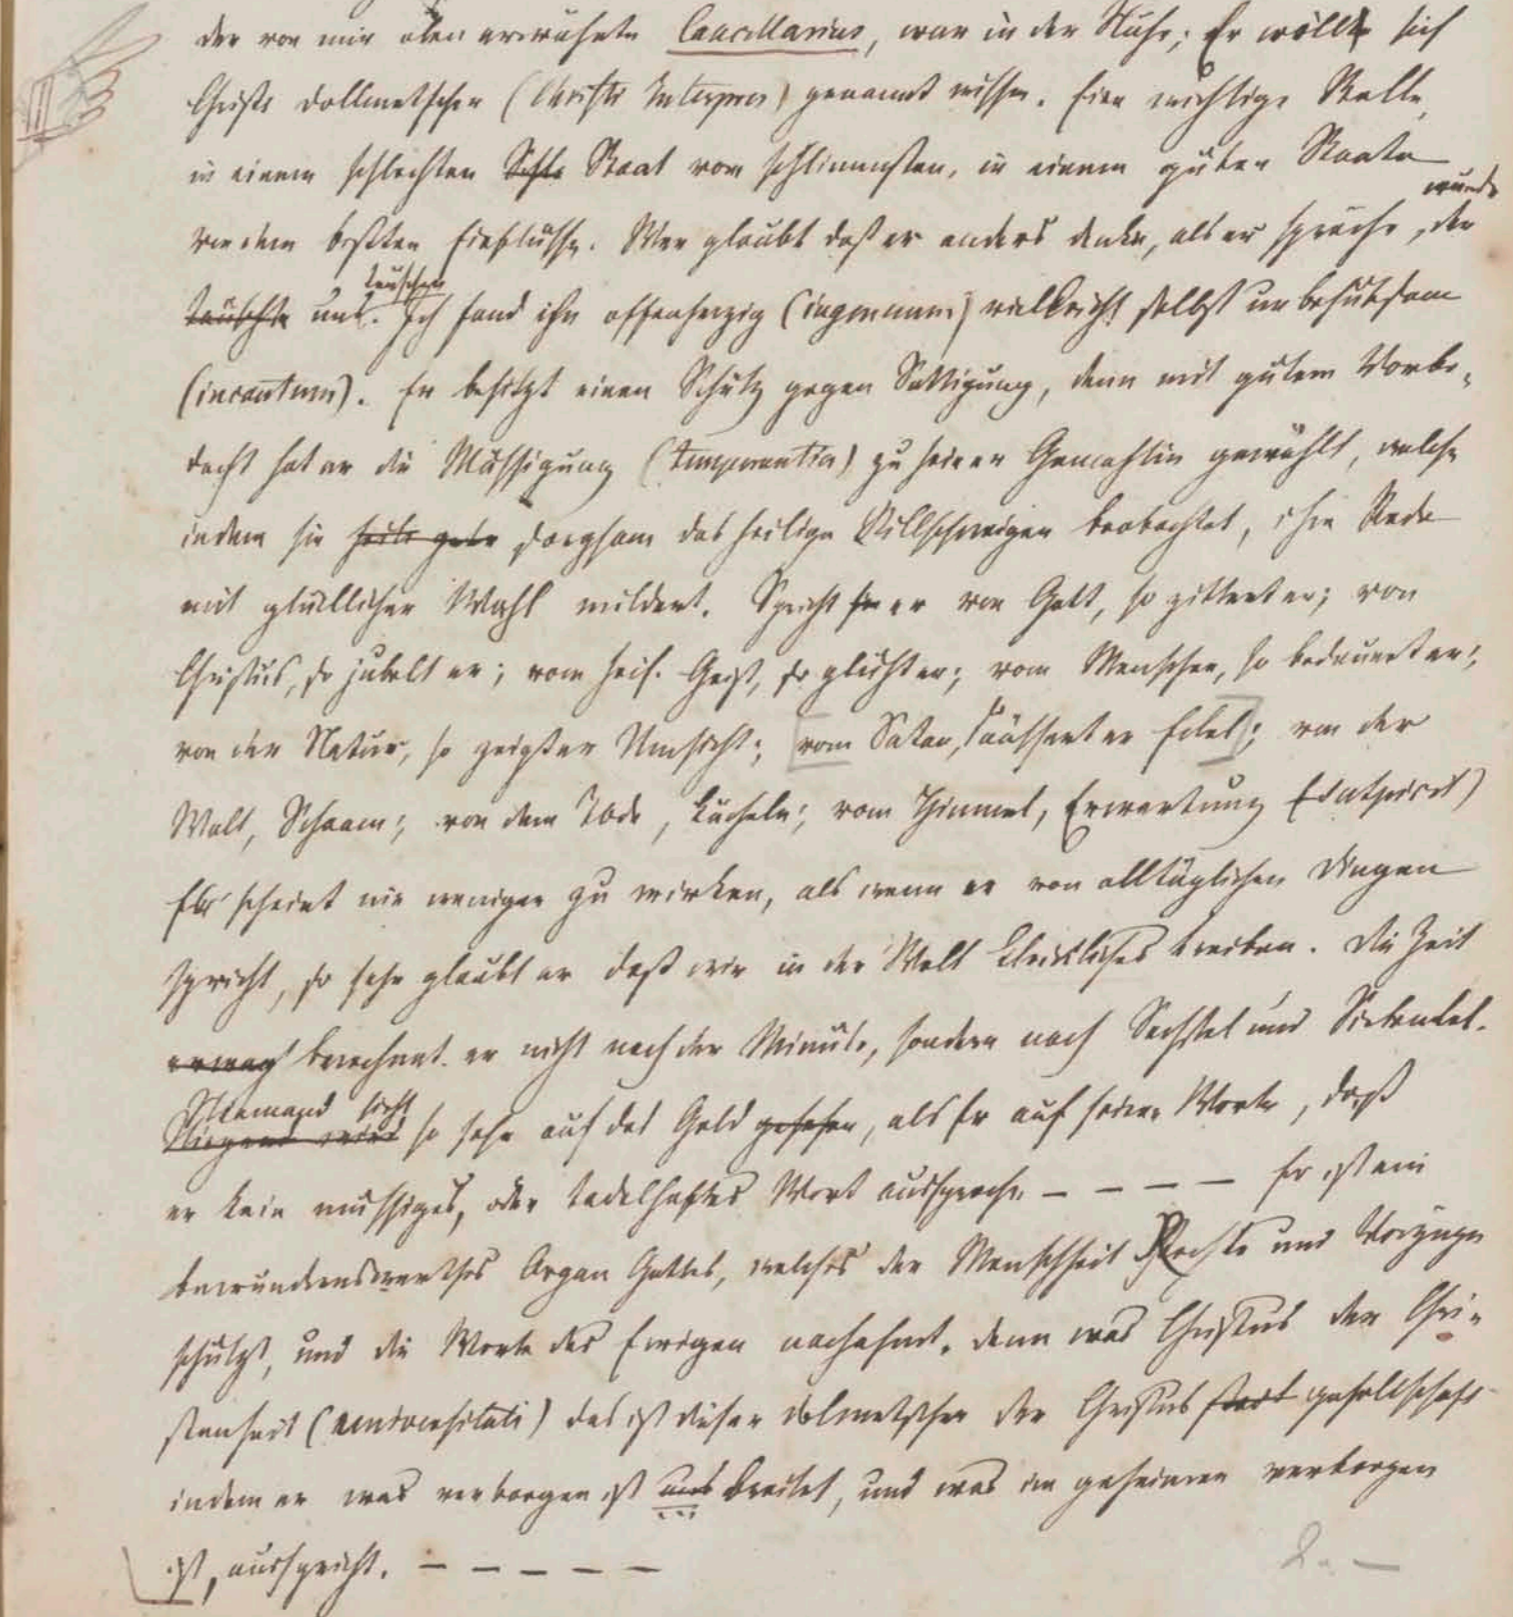 der von mir oben erwähnte Cancellarius, war in der Nähe; Er wollte sich
Christi Dollmetscher (Christi Interpres) genannt wissen. Eine wichtige Stelle,
in einem schlechten Staat vom schlimmsten, in einem guten Staate
von dem beßten Einflusse. Wer glaubt daß er anders denke, als er spreche, der würde
täuschte uns. täuschen Ich fand ihn offenherzig (ingenuum) vielleicht selbst unbehutsam
(incautum). Er besitzt einen Schutz gegen Sättigung, denn mit gutem Vorbe-
dacht hat er die Mässigung (temperantia) zu seiner Gemahlin gewählt, welche
indem sie sorgsam das heilige Stillschweigen beobachtet, ihre Rede
mit glücklicher Wahl mildert. Spricht er von Gott, so zittert er; von
Christus, so jubelt er; vom heil. Geist, so glüht er; vom Menschen, so bedauert er;
von der Natur, so zeigt er Umsicht; [vom Satan, äussert er Ekel]; von der
Welt, Schaam; von dem Tode, Lächeln; vom Himmel, Erwartung
Es scheint nie weniger zu wirken, als wenn er von alltäglichen Dingen
spricht, so sehr glaubt er daß wir in der Welt Christliches treiben. Die Zeit
berechnet er nicht nach der Minute, sondern nach Sechstel und Siebentel.
Niemand sieht
Nirgend wird so sehr auf das Geld gesehen, als Er auf seine Worte, daß
er kein müssiges, oder tadelhaftes Wort ausspreche – – – – Er ist ein
bewundernswerthes Organ Gottes, welches der Menschheit Rechte und Vorzüge
schützt, und die Worte des Ewigen nachahmt. denn was Christus der Chri-
stenheit (universitati) das ist dieser Dolmetscher der Christus gesellschaft
indem er was verborgen ist aus breitet, und was im geheimen verborgen
ist, ausspricht. – – – – –